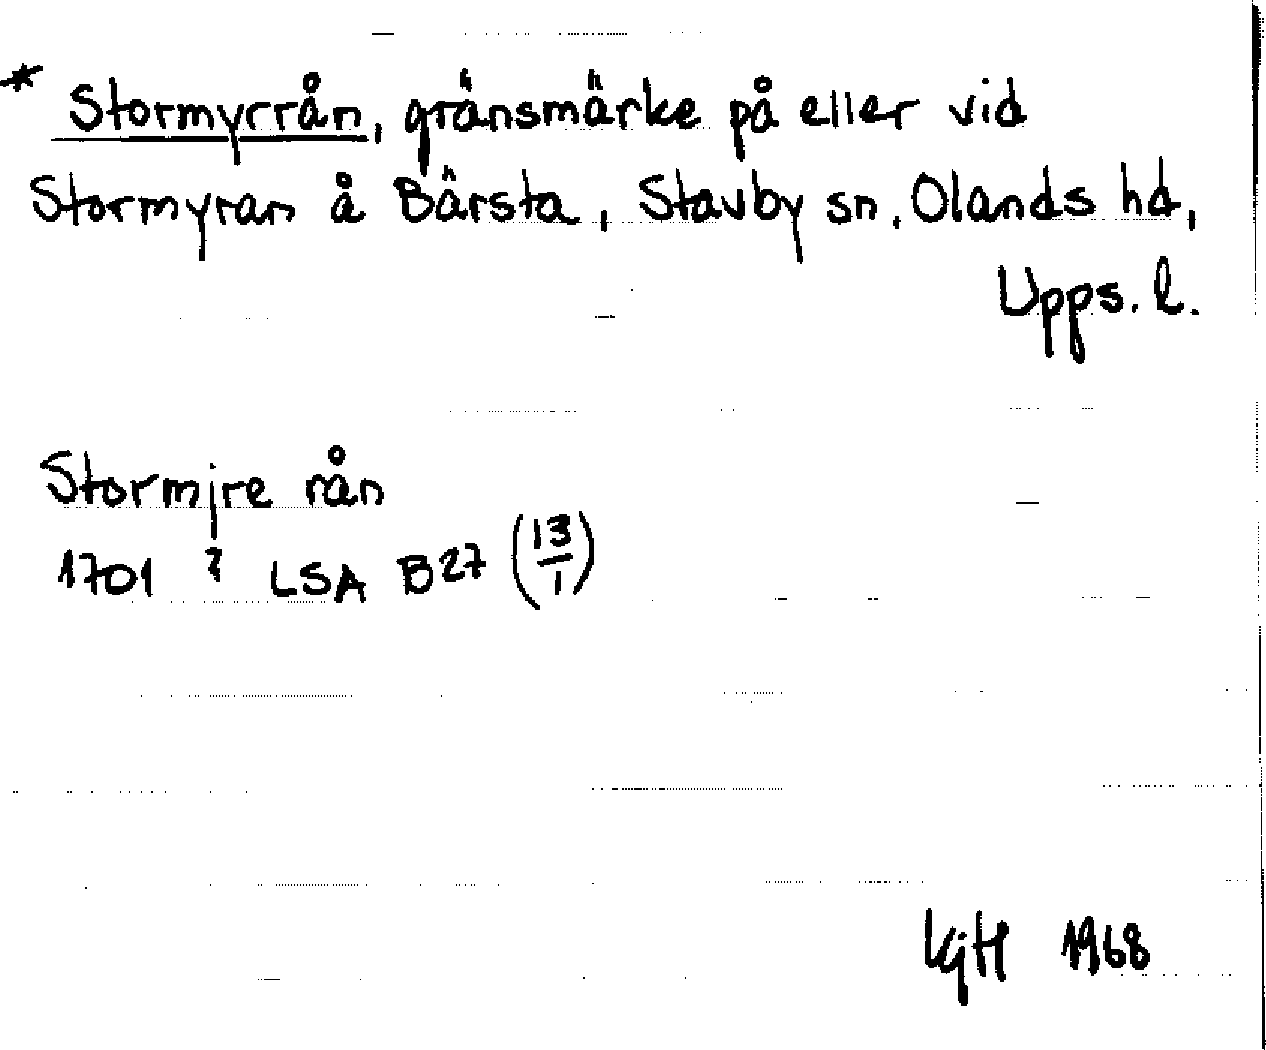 * Stormyrrån, gränsmärke på eller vid
Stormyran å Bärsta, Stavby sn, Olands hd,
Upps. l.
Stormjre rån
1701 ? LSA B27 (13/1)
1968